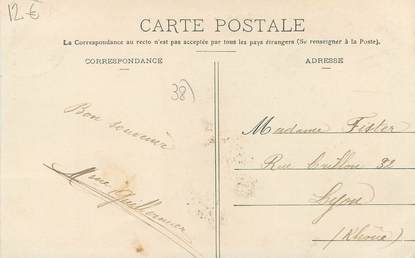 12€
CARTE POSTALE
La Correspondance au recto n'est pas acceptée par tous les pays étrangers (Se renseigner à la Poste).
CORRESPONDANCE
ADRESSE
38)
Bon souvenir
Mme
Madame Fister
Rue 32
Lyon
(Rhône)